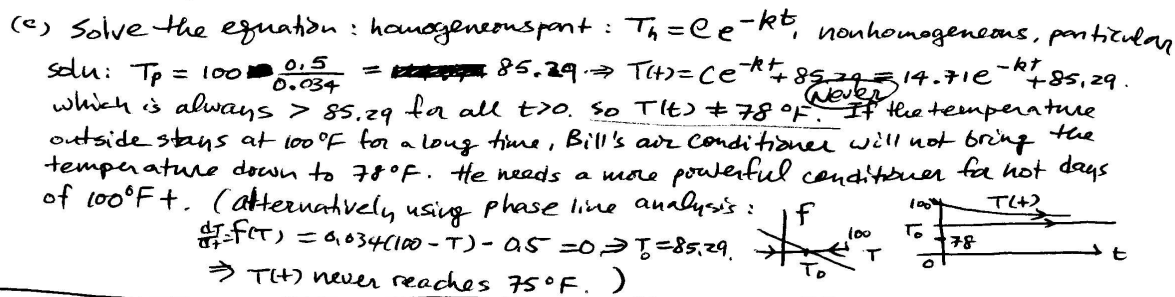 (c) Solve the equation : homogeneous part : T_h = Ce^{-kt}, nonhomogeneous, particular
soln: T_p = 100 - 0.5/0.034 = 85.29 ⇒ T(t) = Ce^{-kt} + 85.29 = 14.71e^{-kt} + 85.29.
which is always > 85.29 for all t>0. so T(t) ≠ 78 °F. Never If the temperature
outside stays at 100°F for a long time, Bill's air conditioner will not bring the
temperature down to 78°F. He needs a more powerful conditioner for hot days
of 100°F+. (alternatively using phase line analysis :
dT/dt = f(T) = 0.034(100 - T) - 0.5 = 0 ⇒ T_0 = 85.29.
⇒ T(t) never reaches 75°F. )
f
100
T
T_0
100
T(t)
T_0
78
0
t